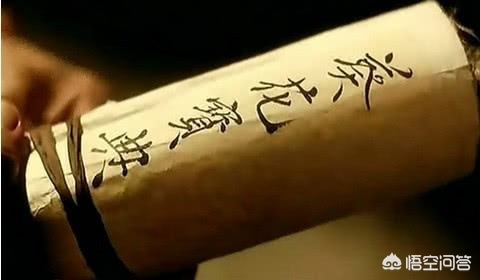 葵花寶典
悟空问答